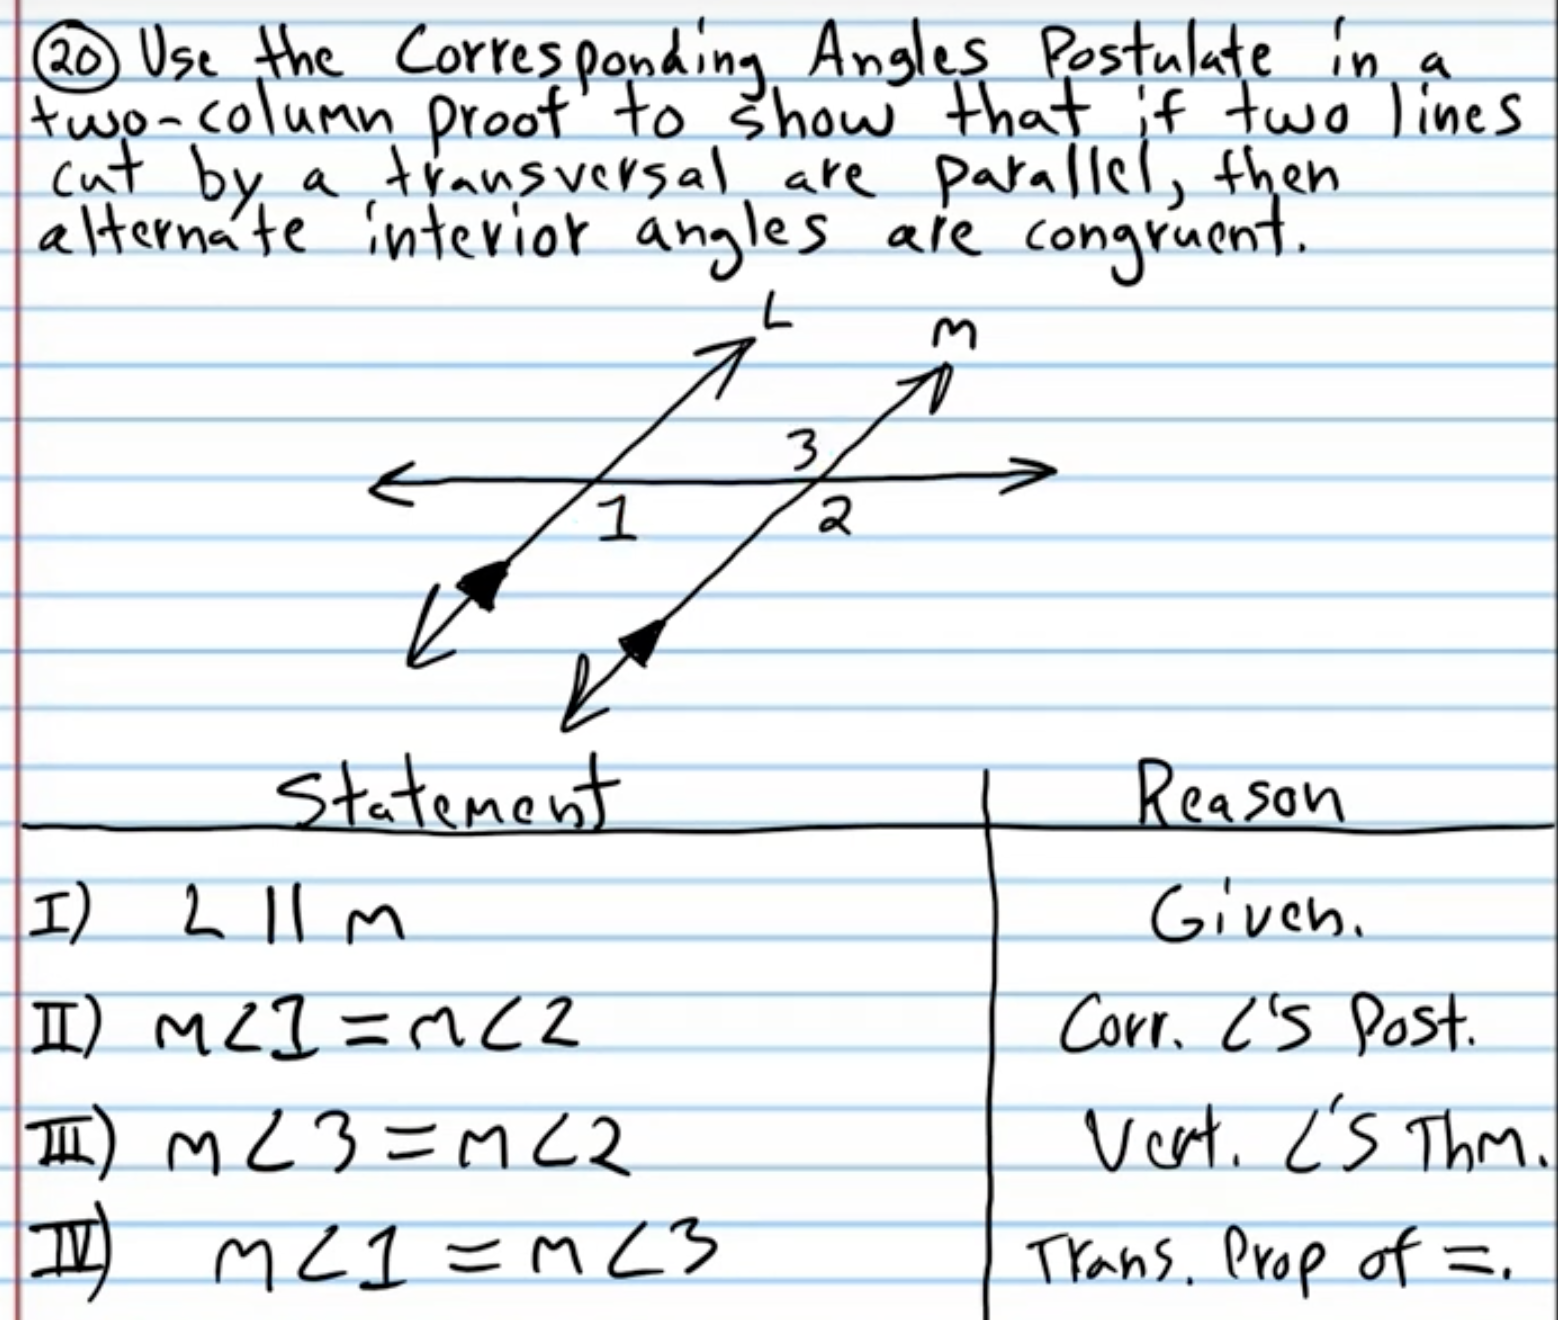 20 Use the Corresponding Angles Postulate in a
two-column proof to show that if two lines
cut by a transversal are parallel, then
alternate interior angles are congruent.
L
m
3
1
2
Statement Reason
I) L || m Given.
II) m∠1 = m∠2 Corr. ∠'s Post.
III) m∠3 = m∠2 Vert. ∠'s Thm.
IV) m∠1 = m∠3 Trans. Prop of =.